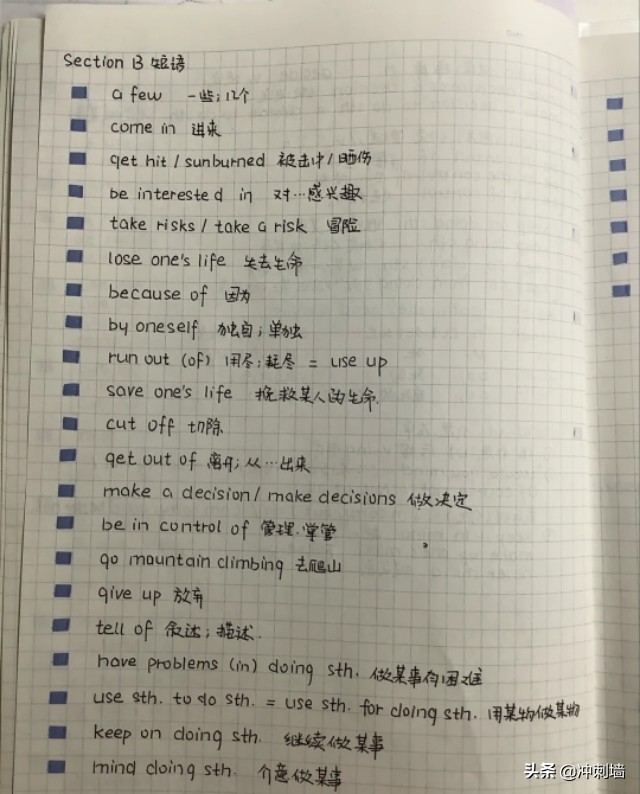 Section B 短语
a few 一些；几个
come in 进来
get hit / sunburned 被击中/晒伤
be interested in 对…感兴趣
take risks / take a risk 冒险
lose one's life 失去生命
because of 因为
by oneself 独自；单独
run out (of) 用尽；耗尽 = use up
save one's life 挽救某人的生命.
cut off 切除
get out of 离开；从…出来
make a decision / make decisions 做决定
be in control of 管理.掌管
go mountain climbing 去爬山
give up 放弃
tell of 叙述；描述.
have problems (in) doing sth. 做某事有困难
use sth. to do sth. = use sth. for doing sth. 用某物做某物
keep on doing sth. 继续做某事
mind doing sth. 介意做某事
头条 @冲刺墙